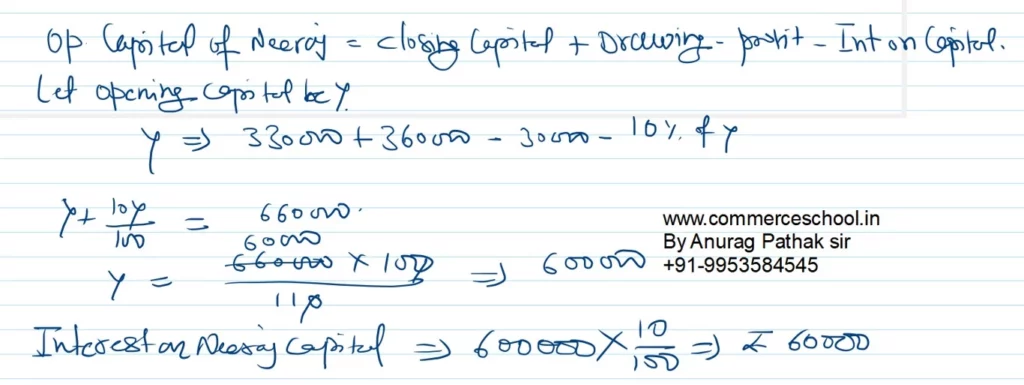 Op. Capital of Neeraj = closing Capital + Drawing - profit - Int on Capital.
Let opening capital be Y.
Y ⇒ 330000 + 360000 - 30000 - 10% of Y
Y + 10Y/100 = 660000.
60000
Y = 660000 × 100 / 110 ⇒ 600000
www.commerceschool.in
By Anurag Pathak sir
+91-9953584545
Interest on Neeraj Capital ⇒ 600000 × 10/100 ⇒ ₹ 60000